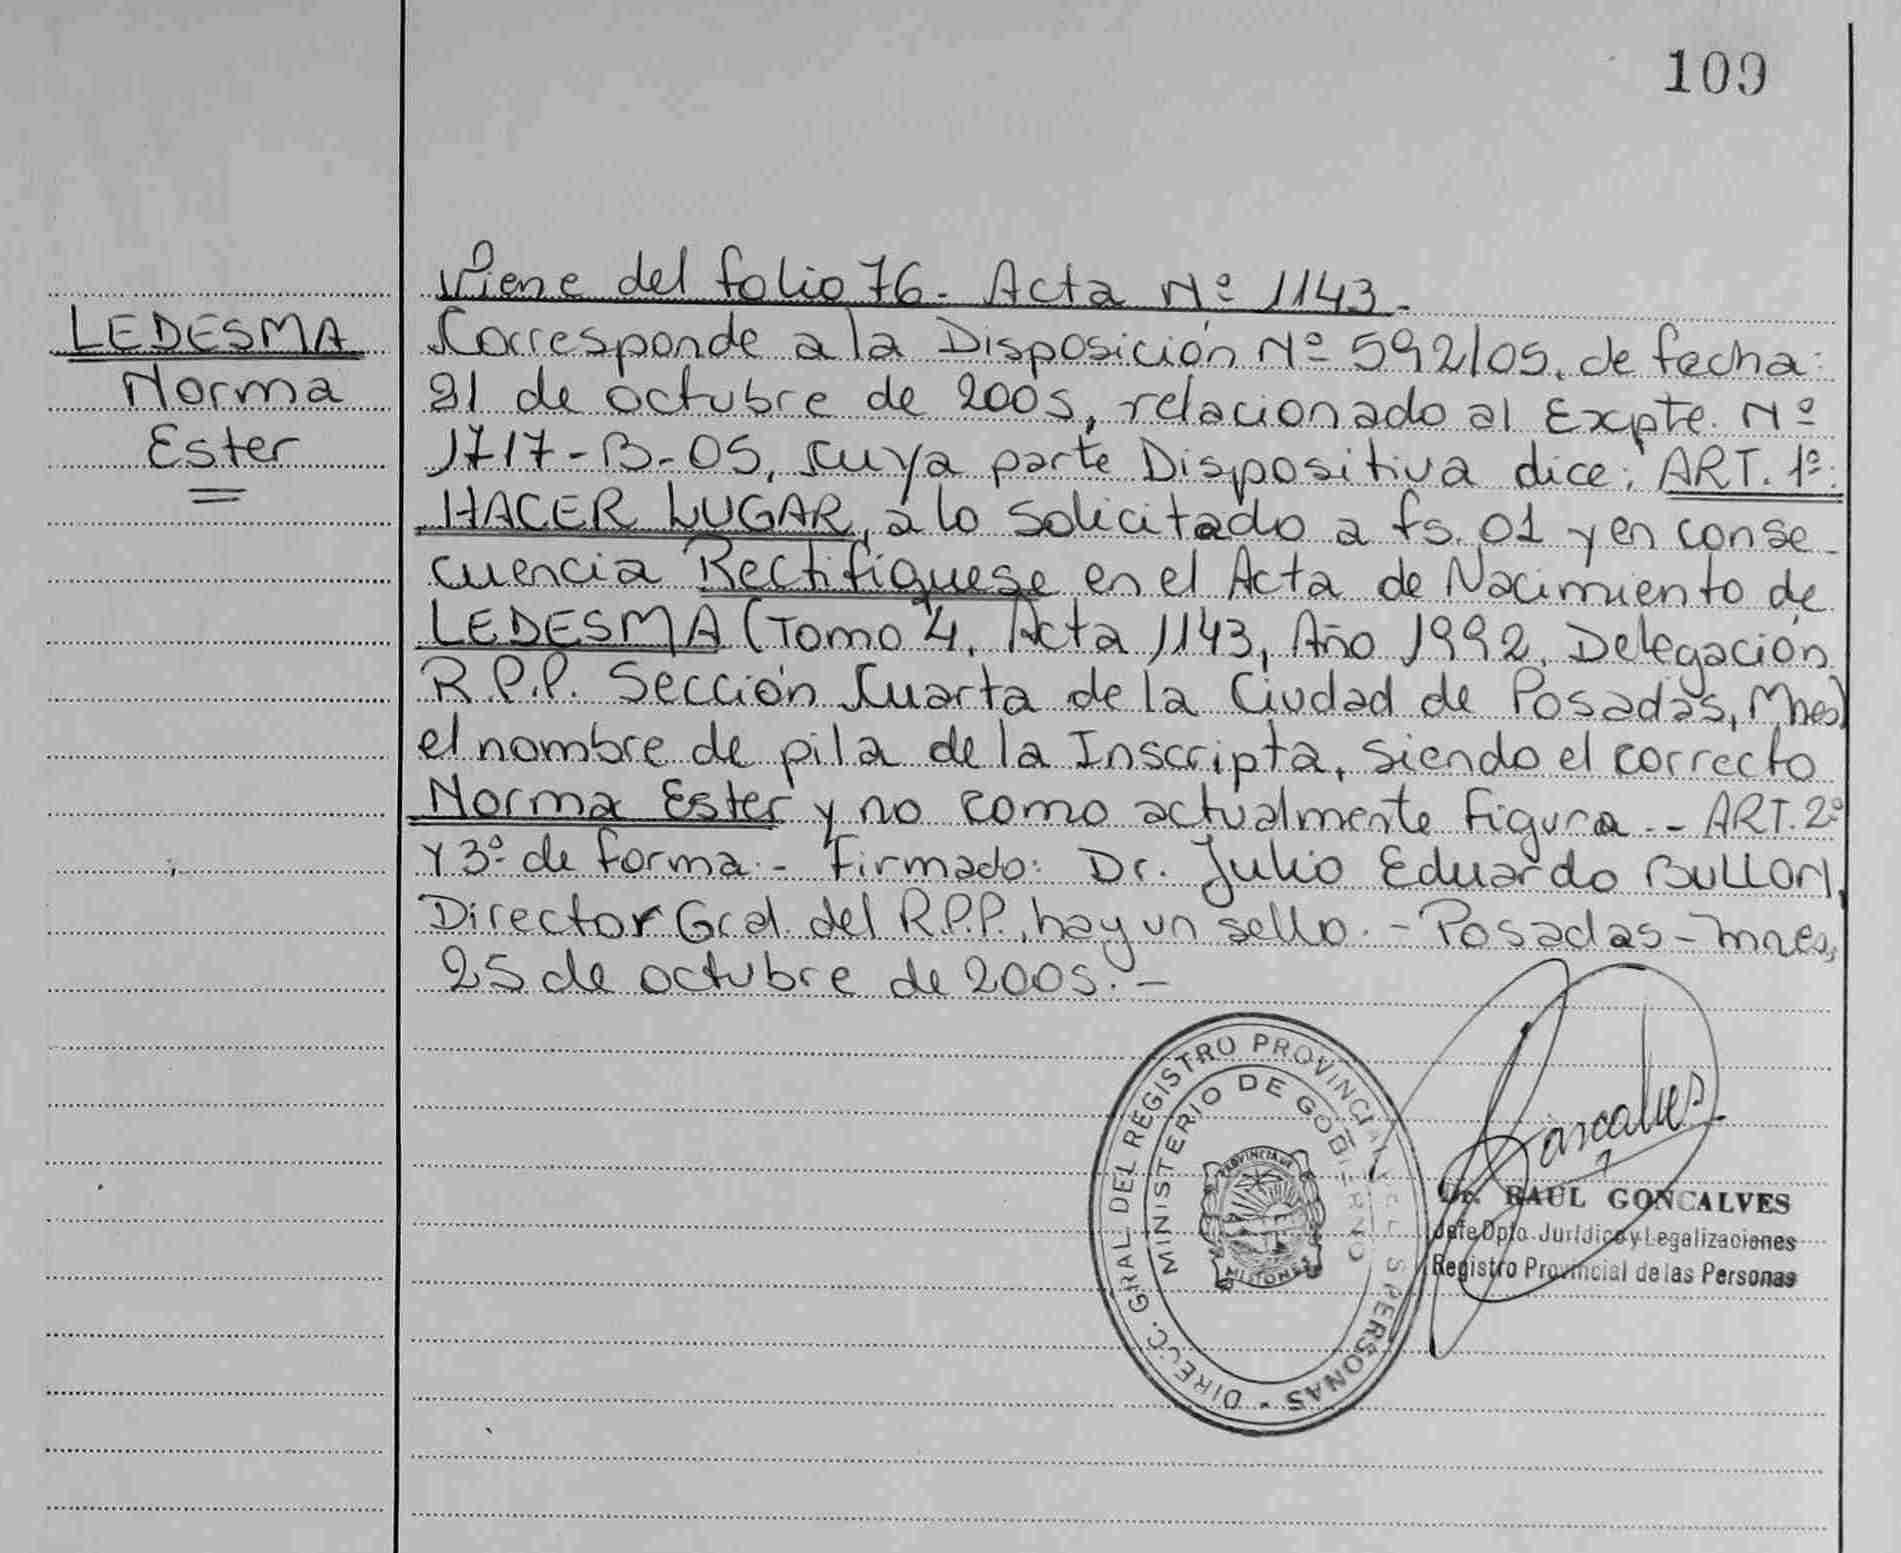 109
LEDESMA
Norma
Ester
Viene del folio 76. Acta Nº 1143.
Corresponde a la Disposición Nº 592/05, de fecha:
21 de octubre de 2005, relacionado al Expte. Nº
1717-B-05, cuya parte Dispositiva dice: ART. 1º:
HACER LUGAR, a lo solicitado a fs. 01 y en conse-
cuencia Rectifíquese en el Acta de Nacimiento de
LEDESMA (Tomo 4, Acta 1143, Año 1992, Delegación
R.P.P. Sección Cuarta de la Ciudad de Posadas, Mnes)
el nombre de pila de la Inscripta, siendo el correcto
Norma Ester y no como actualmente figura.- ART. 2º
Y 3º de forma.- Firmado: Dr. Julio Eduardo BULLON,
Director Gral. del R.P.P., hay un sello.- Posadas - Mnes,
25 de octubre de 2005.-
DIRECC. GRAL DEL REGISTRO PROVINCIAL DE LAS PERSONAS -
MINISTERIO DE GOBIERNO
PROVINCIA DE
MISIONES
Goncalves
Dr. RAUL GONCALVES
Jefe Dpto. Jurídico y Legalizaciones
Registro Provincial de las Personas